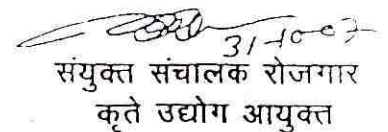 31-10-07
संयुक्त संचालक रोजगार
कृते उद्योग आयुक्त